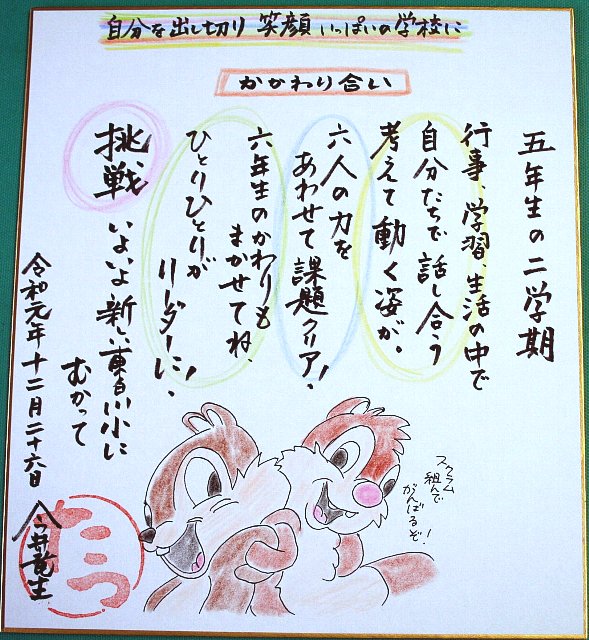 自分を出し切り 笑顔いっぱいの学校に
かかわり合い
五年生の二学期
行事、学習、生活の中で
自分たちで話し合う
考えて動く姿が、
六人の力を
あわせて課題クリア!
六年生のかわりも
まかせてね、
ひとりひとりが
リーダーに!
挑戦 いよいよ新しい東白川小に
むかって
令和元年十二月二十六日
今井竜生
スクラム
組んで
がんばるぞ!
たつ